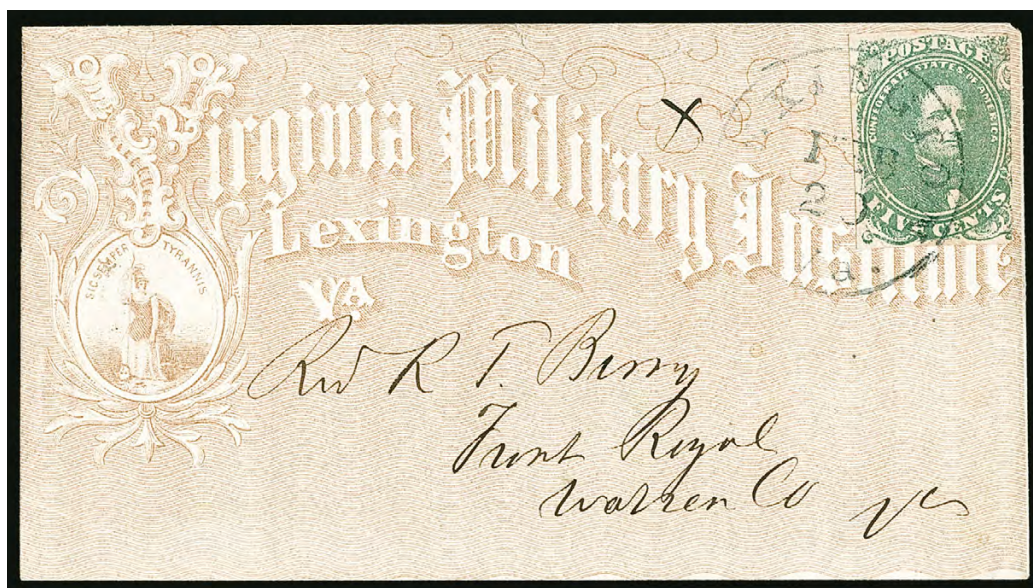 Virginia Military Institute
Lexington
VA
SIC SEMPER TYRANNIS
POSTAGE
CONFEDERATE STATES OF AMERICA
FIVE CENTS
X
Va.
Rev R T. Berry
Front Royal
Warren Co Va